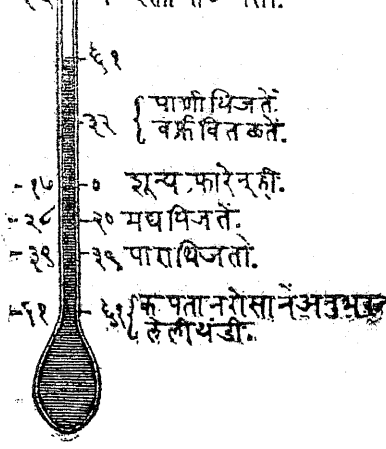 ६१
३२ { पाणी थिजतें.
बर्फ वितळतें.
-१७ -० शून्य फारेनही.
-२८ -२० मद्य थिजतें.
-३९ -३९ पारा थिजतो.
-६१ -६१ { कपतान रोसानें अनुभव
लेली थंडी.